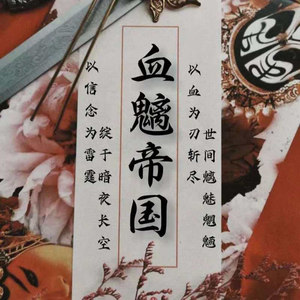 以信念为雷霆
绽于暗夜长空
血魑帝国
以血为刃斩尽
世间魑魅魍魉